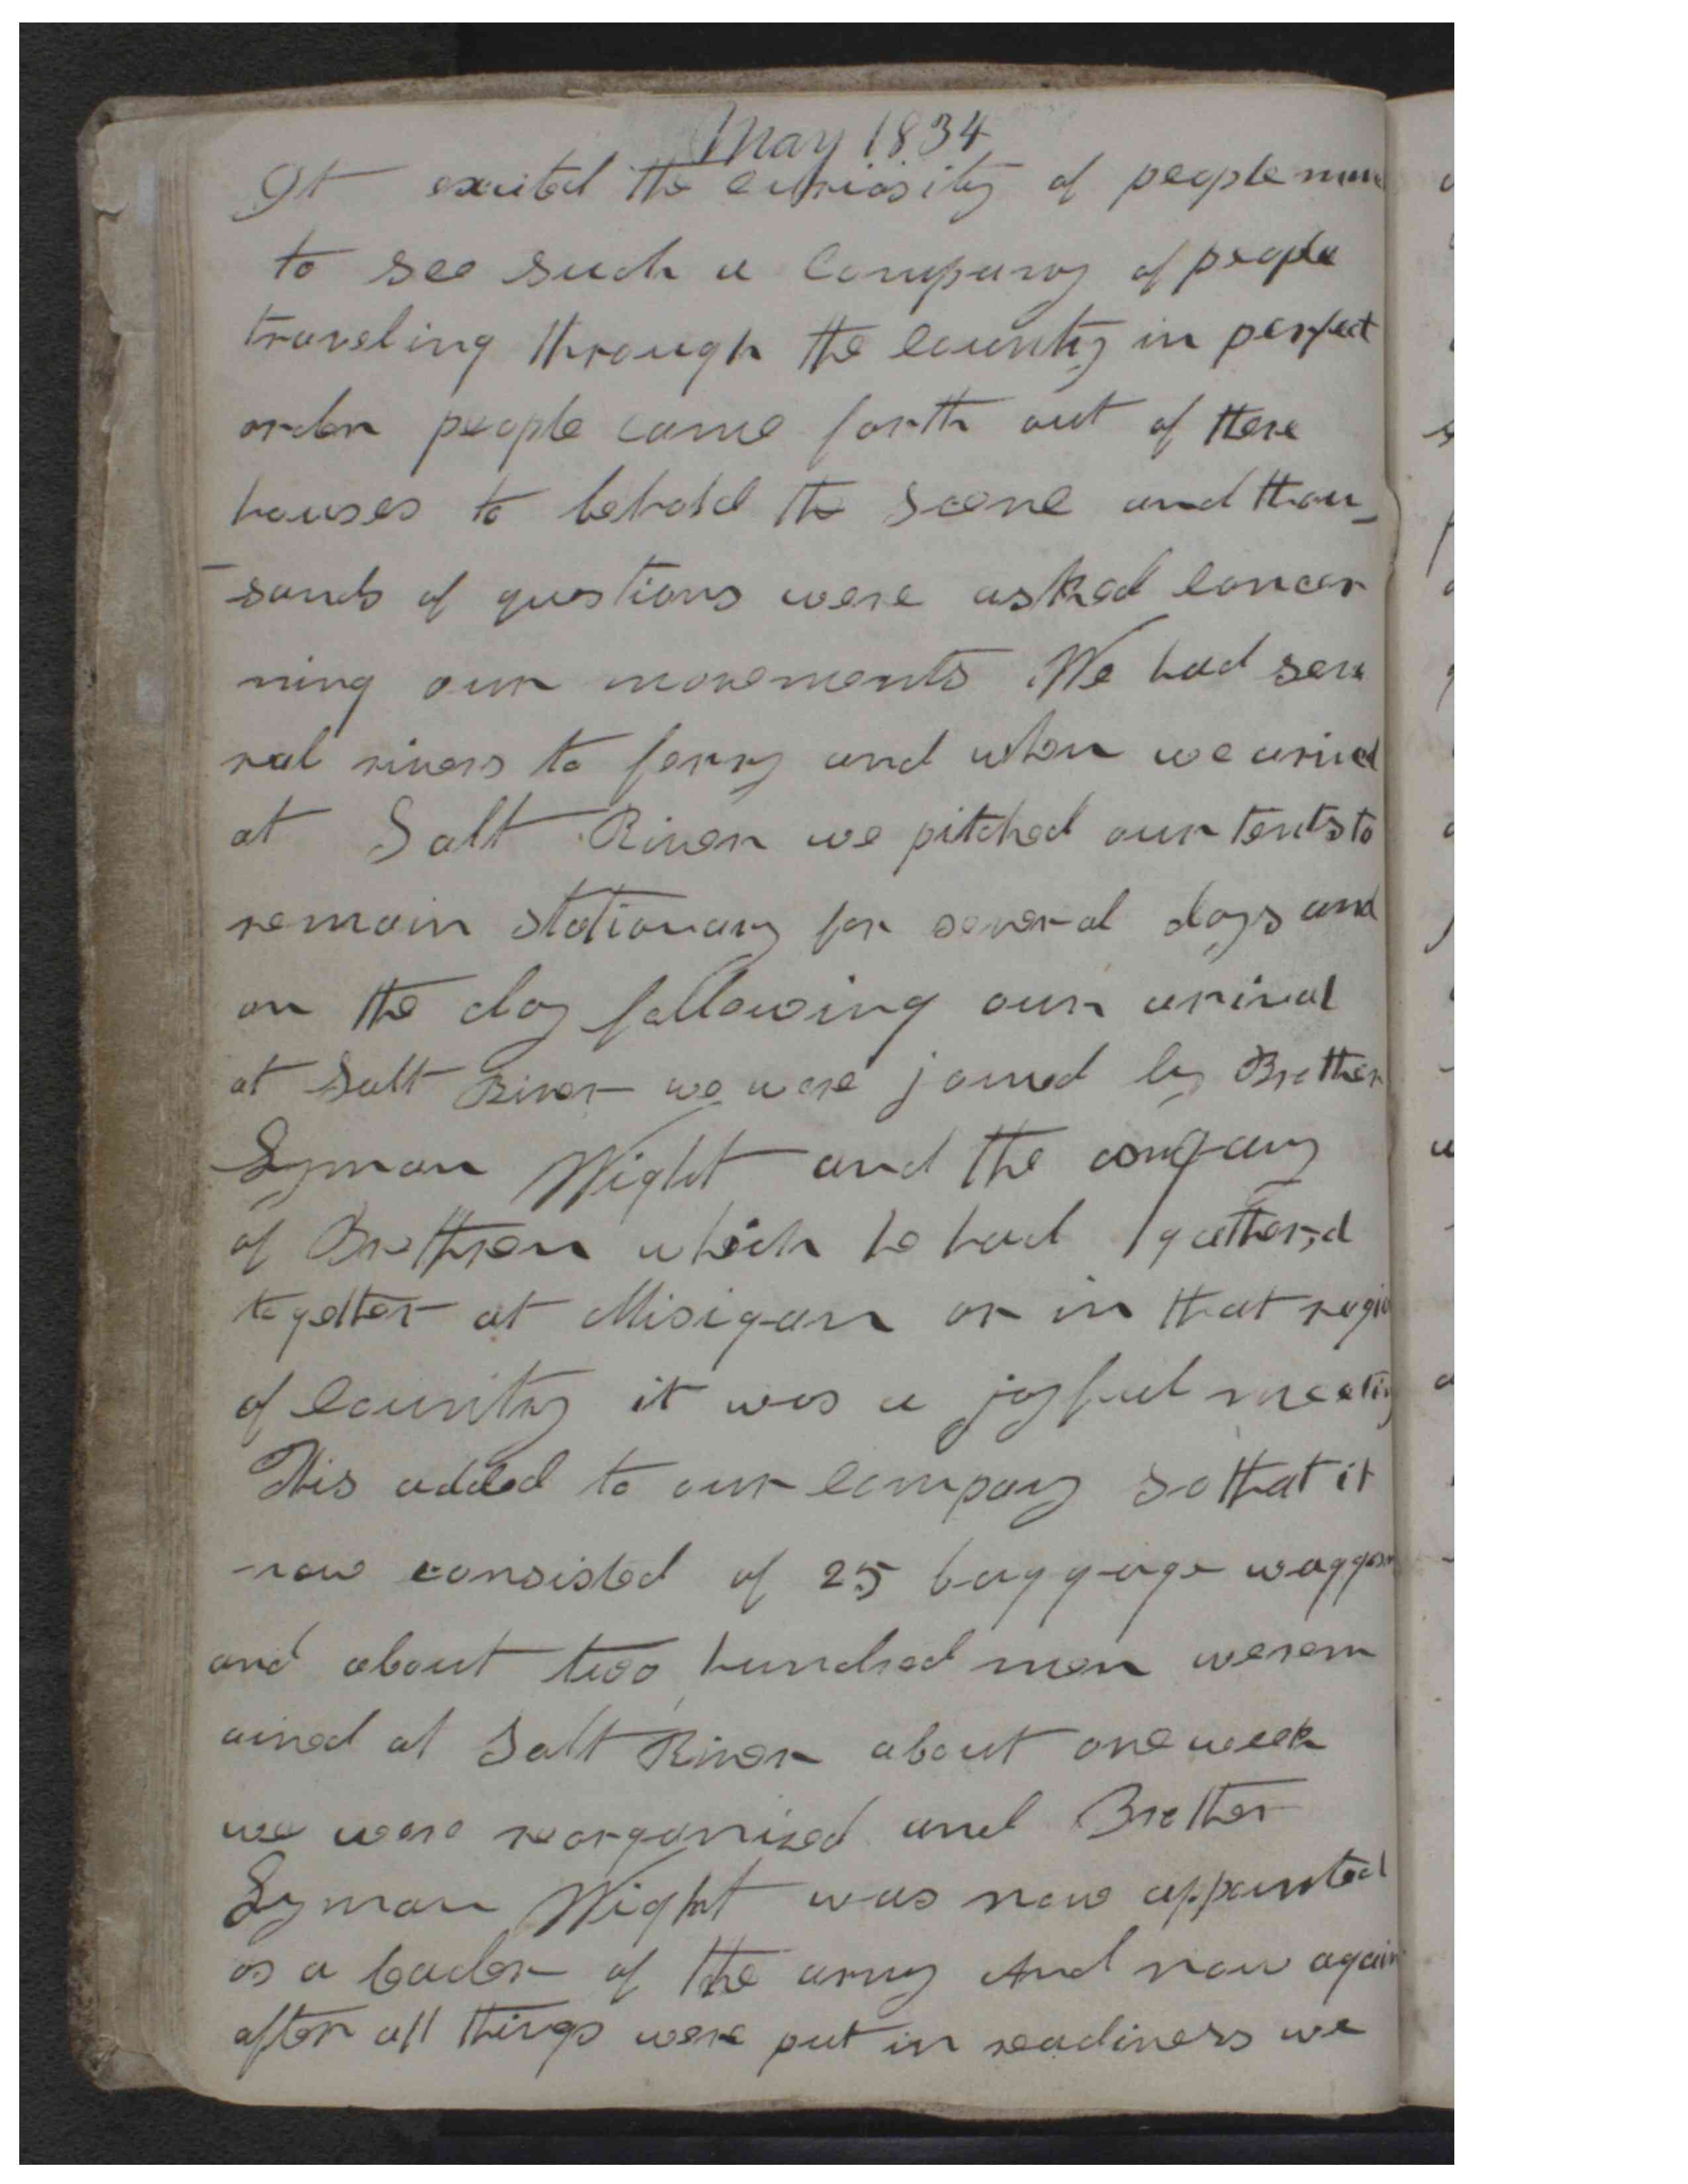 May 1834
It excited the curiosity of people much
to see such a company of people
traveling through the country in perfect
order people came forth out of there
houses to behold the scene and thou_
-sands of questions were asked concer
ning our movements We had seve
ral rivers to ferry and when we arived
at Salt River we pitched our tents to
remain stationary for several days and
on the day following our arival
at Salt River we were joined by Brother
Lyman Wight and the company
of Brethren which he had gathered
together at Misigan or in that regio
of country it was a joyful meeting
This added to our company so that it
now consisted of 25 baggage waggons
and about two hundred men we rem
ained at Salt River about one week
we were reorganized and Brother
Lyman Wight was now appointed
as a leader of the army And now again
after all things were put in readiness we